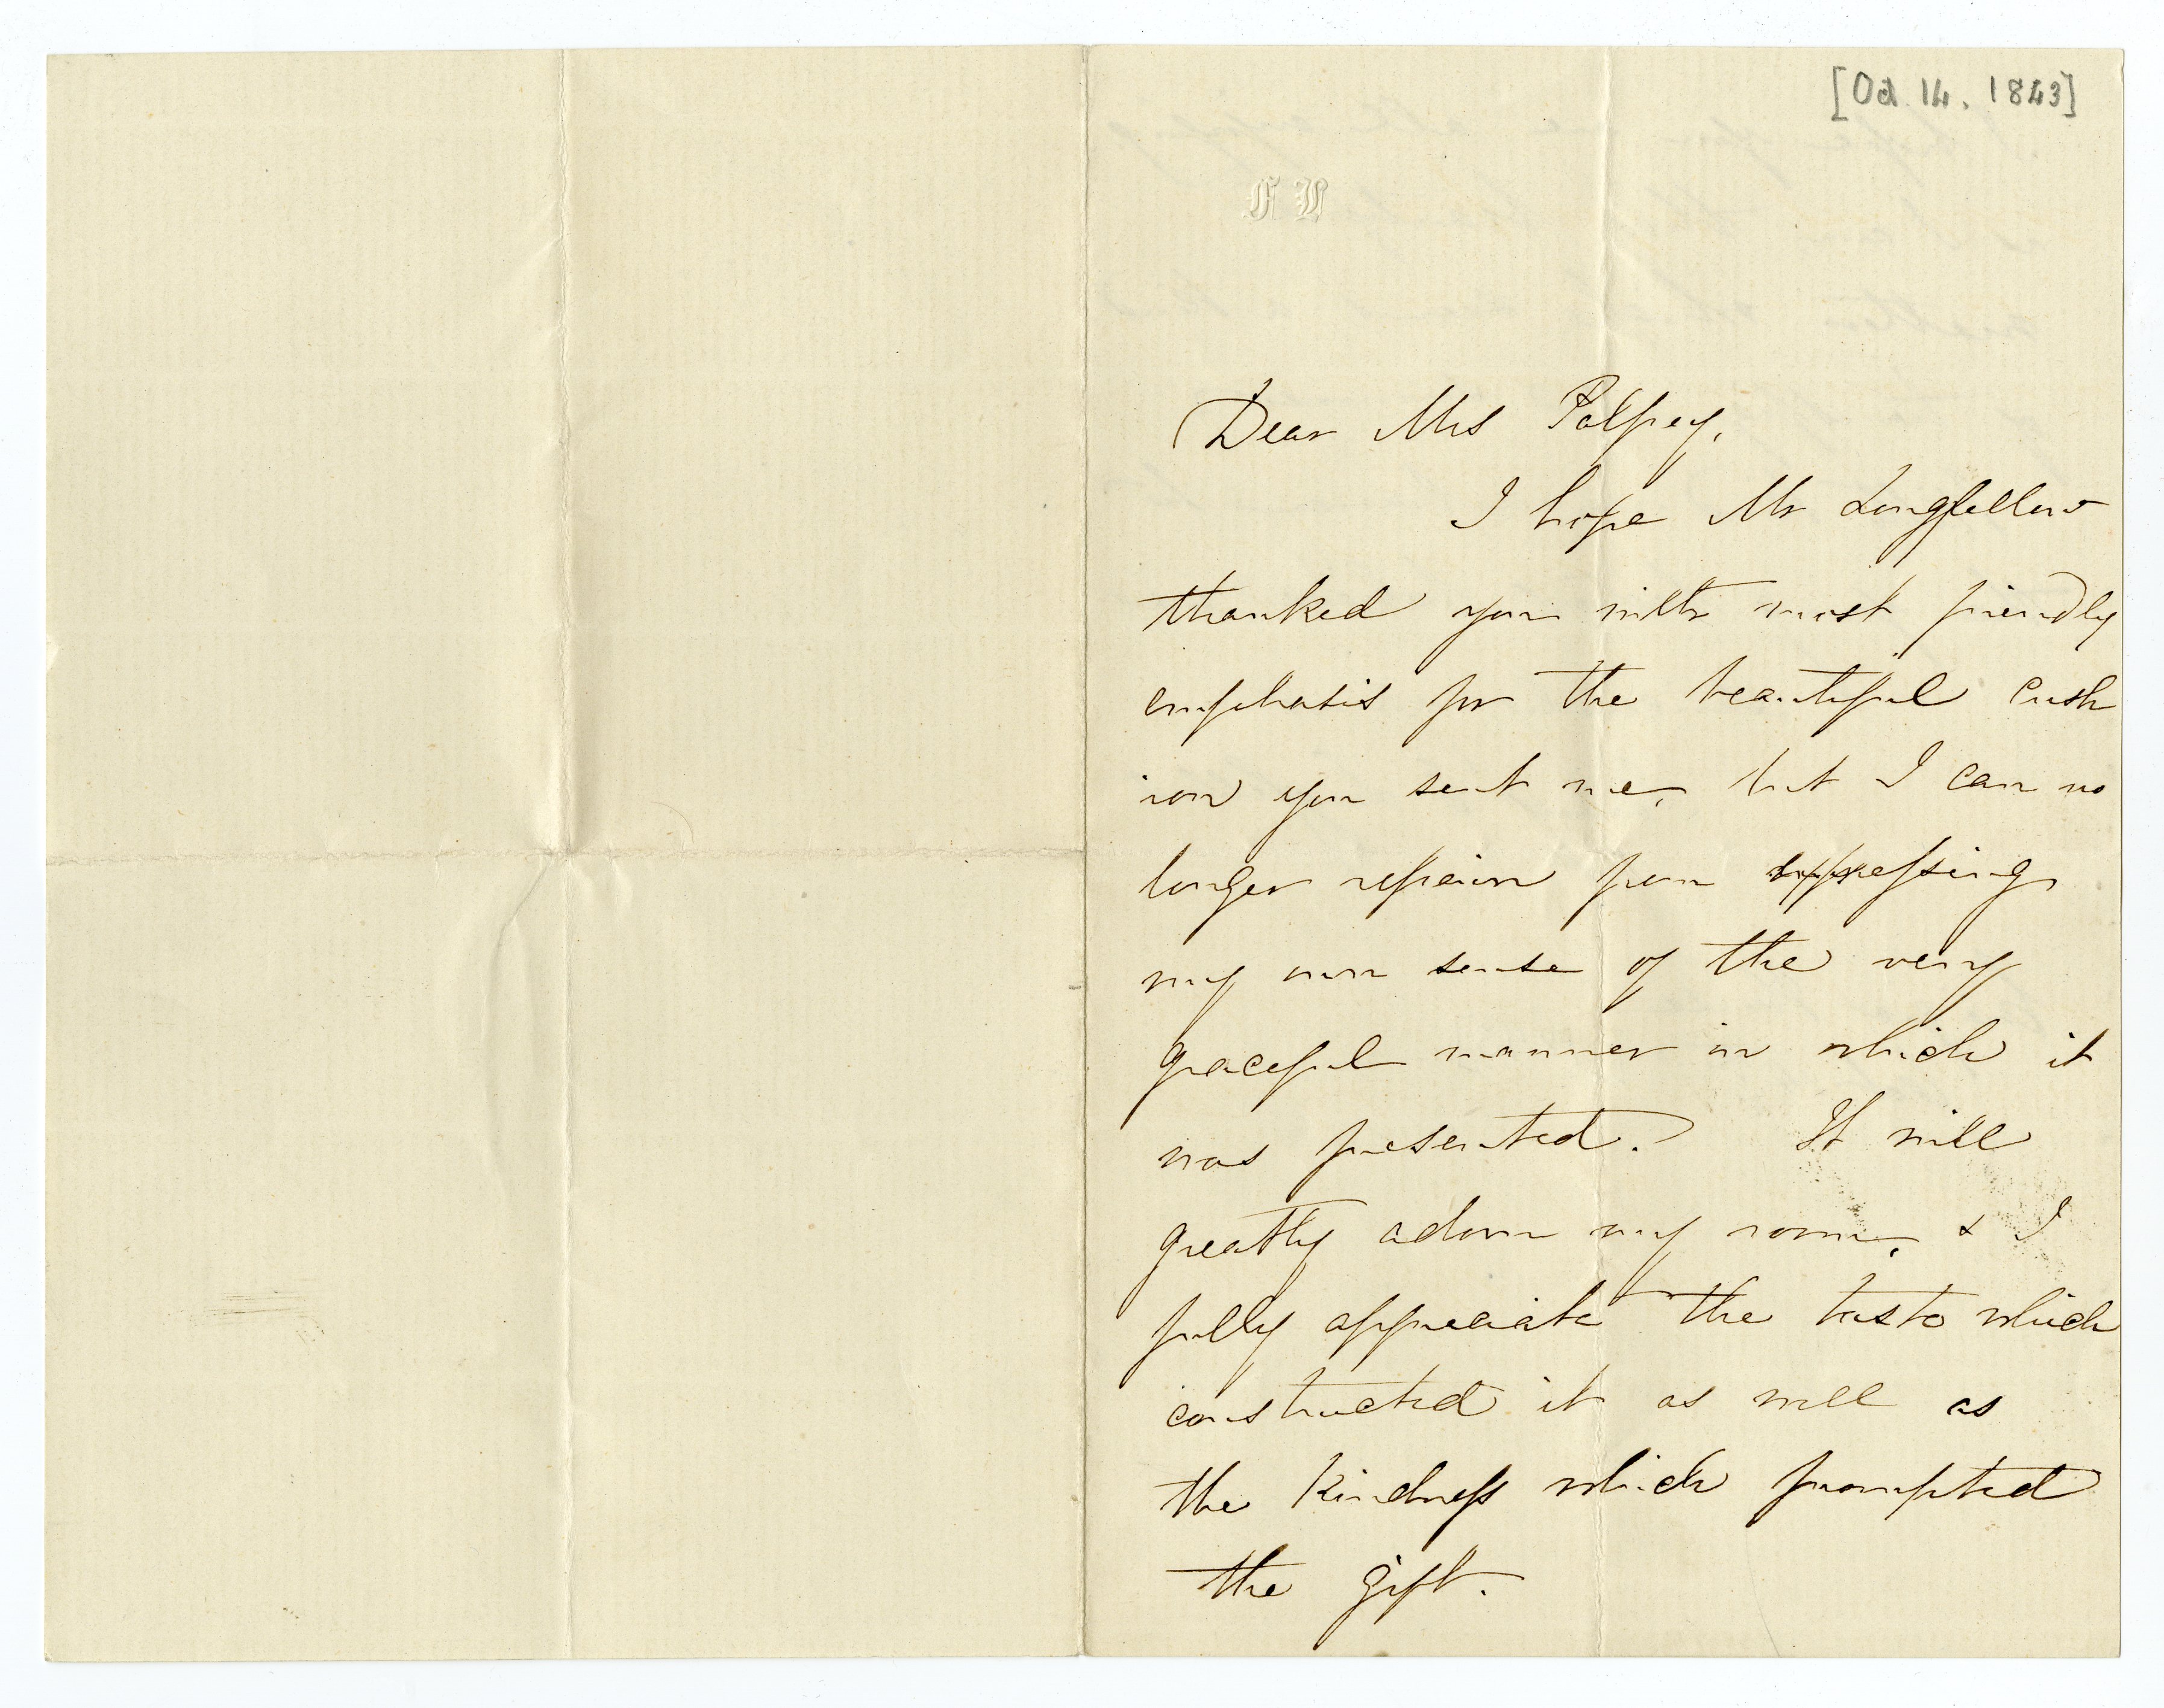 [Oct 14. 1843]
F L
Dear Mrs Palfrey,
I hope Mr Longfellow
thanked you with most friendly
emphasis for the beautiful cush
ion you sent me, but I can no
longer refrain from expressing
my own sense of the very
graceful manner in which it
was presented. It will
greatly adorn my room, & I
fully appreciate the taste which
constructed it as well as
the kindness which prompted
the gift.